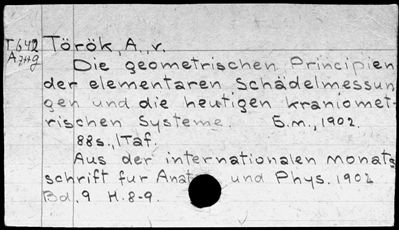 T642 Török, A., v.
A749
Die geometrischen Principien
der elementaren Schädelmessun
gen und die heutigen kraniomet-
rischen Systeme. S.m., 1902.
88s., 1Taf.
Aus der internationalen Monats
schrift fur Anat. und Phys. 1902
Bd. 9 H. 8-9.